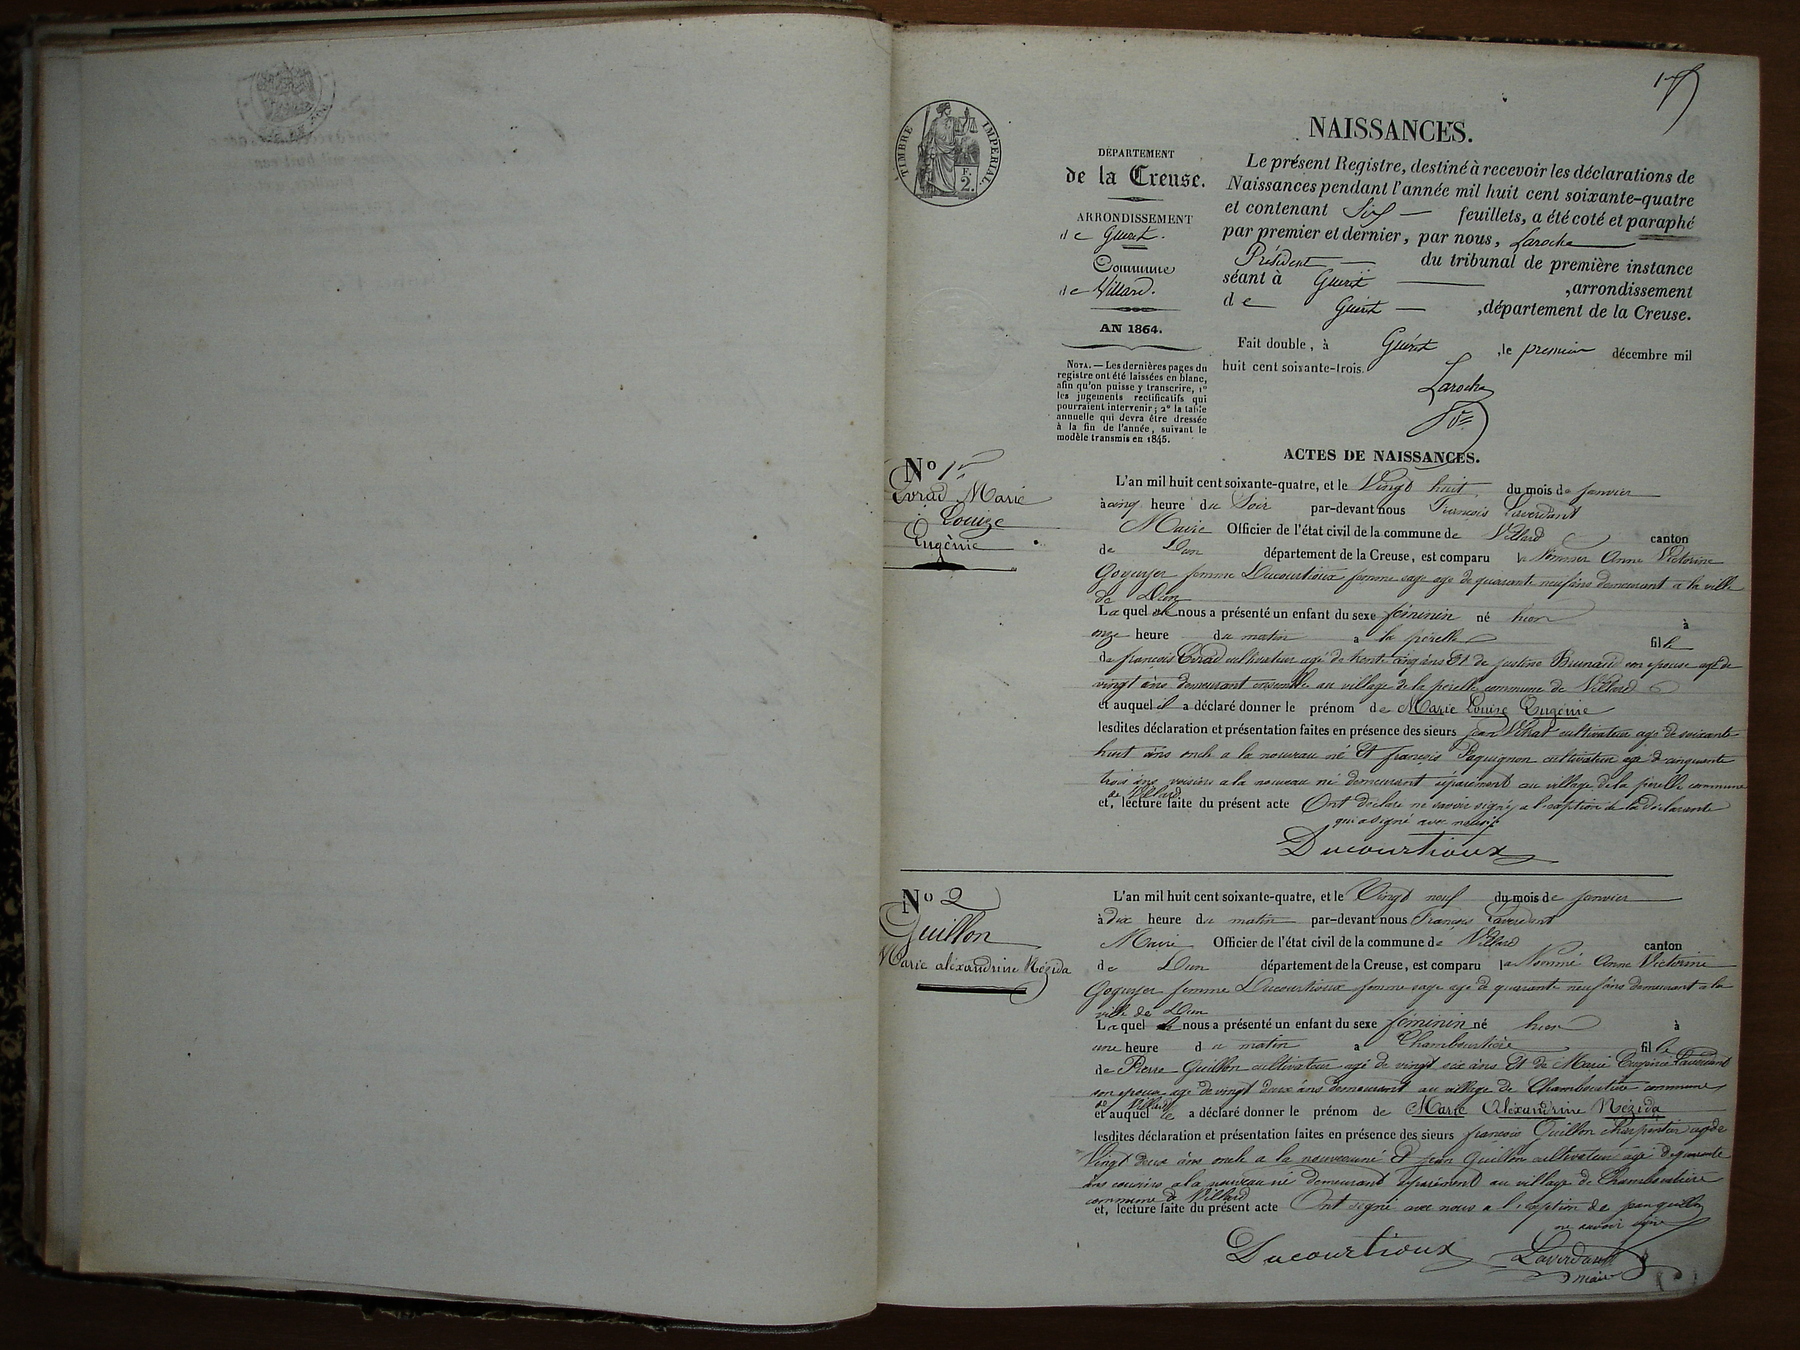 TIMBRE IMPERIAL
F.
2.
DÉPARTEMENT
de la Creuse.
ARRONDISSEMENT
de Guéret.
Commune
de Villard.
AN 1864.
NOTA. — Les dernières pages du
registre ont été laissées en blanc,
afin qu'on puisse y transcrire, 1°
les jugements rectificatifs qui
pourraient intervenir; 2° la table
annuelle qui devra être dressée
à la fin de l'année, suivant le
modèle transmis en 1845.
NAISSANCES.
Le présent Registre, destiné à recevoir les déclarations de
Naissances pendant l'année mil huit cent soixante-quatre
et contenant Six — feuillets, a été coté et paraphé
par premier et dernier, par nous, Laroche
Président — du tribunal de première instance
séant à Guéret — , arrondissement
de Guéret — , département de la Creuse.
Fait double, à Guéret , le premier décembre mil
huit cent soixante-trois.
Laroche
ACTES DE NAISSANCES.
No 1er
Evrad Marie
Louize
Eugènie
L'an mil huit cent soixante-quatre, et le Vingt huit du mois de janvier
à cinq heure du Soir par-devant nous François Laverdant
Maire Officier de l'état civil de la commune de Villard canton
de Dun département de la Creuse, est comparu Anne Victorine
femme Ducourtioux femme sage age de quarante neuf ans demeurant a la ville
de Dun
La quel nous a présenté un enfant du sexe féminin né hier à
onze heure du matin a la pérelle fille
de françois Evrad cultivateur agé de trente cinq ans Et de justine Brunaud son epouse agé de
vingt ans demeurant ensemble au village de la pérelle commune de Villard
et auquel il a déclaré donner le prénom de Marie Louize Eugénie
lesdites déclaration et présentation faites en présence des sieurs jean cultivateur age de soixante
huit ans oncle a la nouveau né Et françois Paquignon cultivateur agé de cinquante
trois ans voisin a la nouveau né demeurant séparément au village de la pérelle commune
de Villard
et, lecture faite du présent acte Ont déclare ne savoir signé a l'exeption de la déclarante
qui a signé avec nous
Ducourtioux
No 2
Guillon
Marie aléxandrine Nézida
L'an mil huit cent soixante-quatre, et le Vingt neuf du mois de janvier
à dix heure du matin par-devant nous François Laverdant
Maire Officier de l'état civil de la commune de Villard canton
de Dun département de la Creuse, est comparu la Nommé Anne Victorine
femme Ducourtioux femme sage age de quarante neuf ans demeurant a la
ville de Dun
La quel nous a présenté un enfant du sexe féminin né hier à
une heure du matin a Chamboutière fille
de Pierre Guillon cultivateur agé de vingt six ans Et de Marie Eugénie Laverdant
son epouse age de vingt deux ans demeurant au village de Chamboutière commune
de Villard
et auquel le a déclaré donner le prénom de Marie Aléxandrine Nézida
lesdites déclaration et présentation faites en présence des sieurs françois Guillon charpentier age de
Vingt deux ans oncle a la nouveau né Et jean Guillon cultivateur agé de quarante
ans cousin a la nouveau né demeurant séparément au village de Chamboutière
commune de Villard
et, lecture faite du présent acte Ont signé avec nous a l'exeption de jean guillon
ne savoir signé
Ducourtioux Laverdant
maire